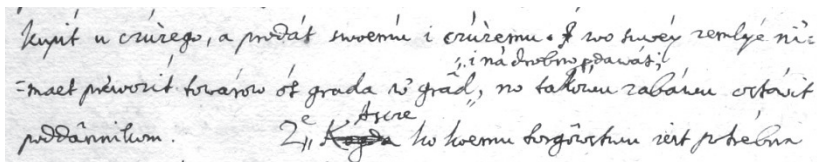 kupít u czúżego, a prodát swoemú i czúżemu. A wo swoéy zemlyé ni=
„ i ná drobno pdawát;
=maet préwozít towárow ót gráda w grád „, no takówu zabáwu ostáwit
poddánnikom. 2„ Ascre
Kogda ko koemu torgówstwu iest potrébna